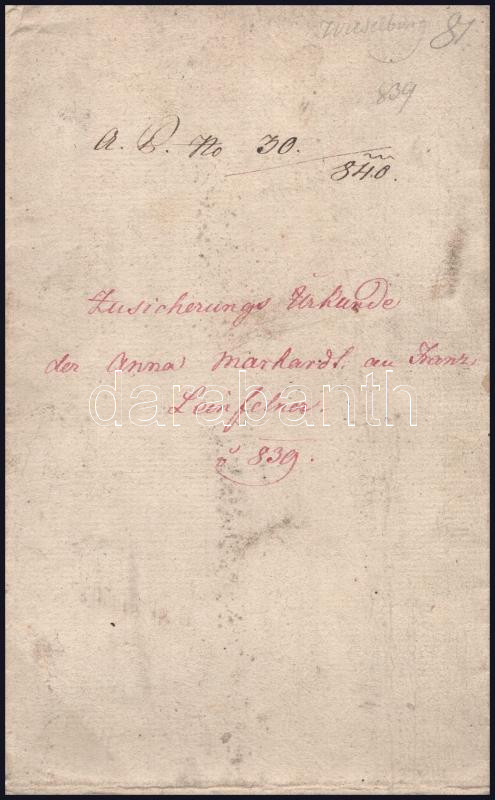 Wieselburg 81
839
A. P. No 30.
840.
Zusicherungs Urkunde
der Anna Markardt. an Franz
Leinfelner.
839.
darabanth